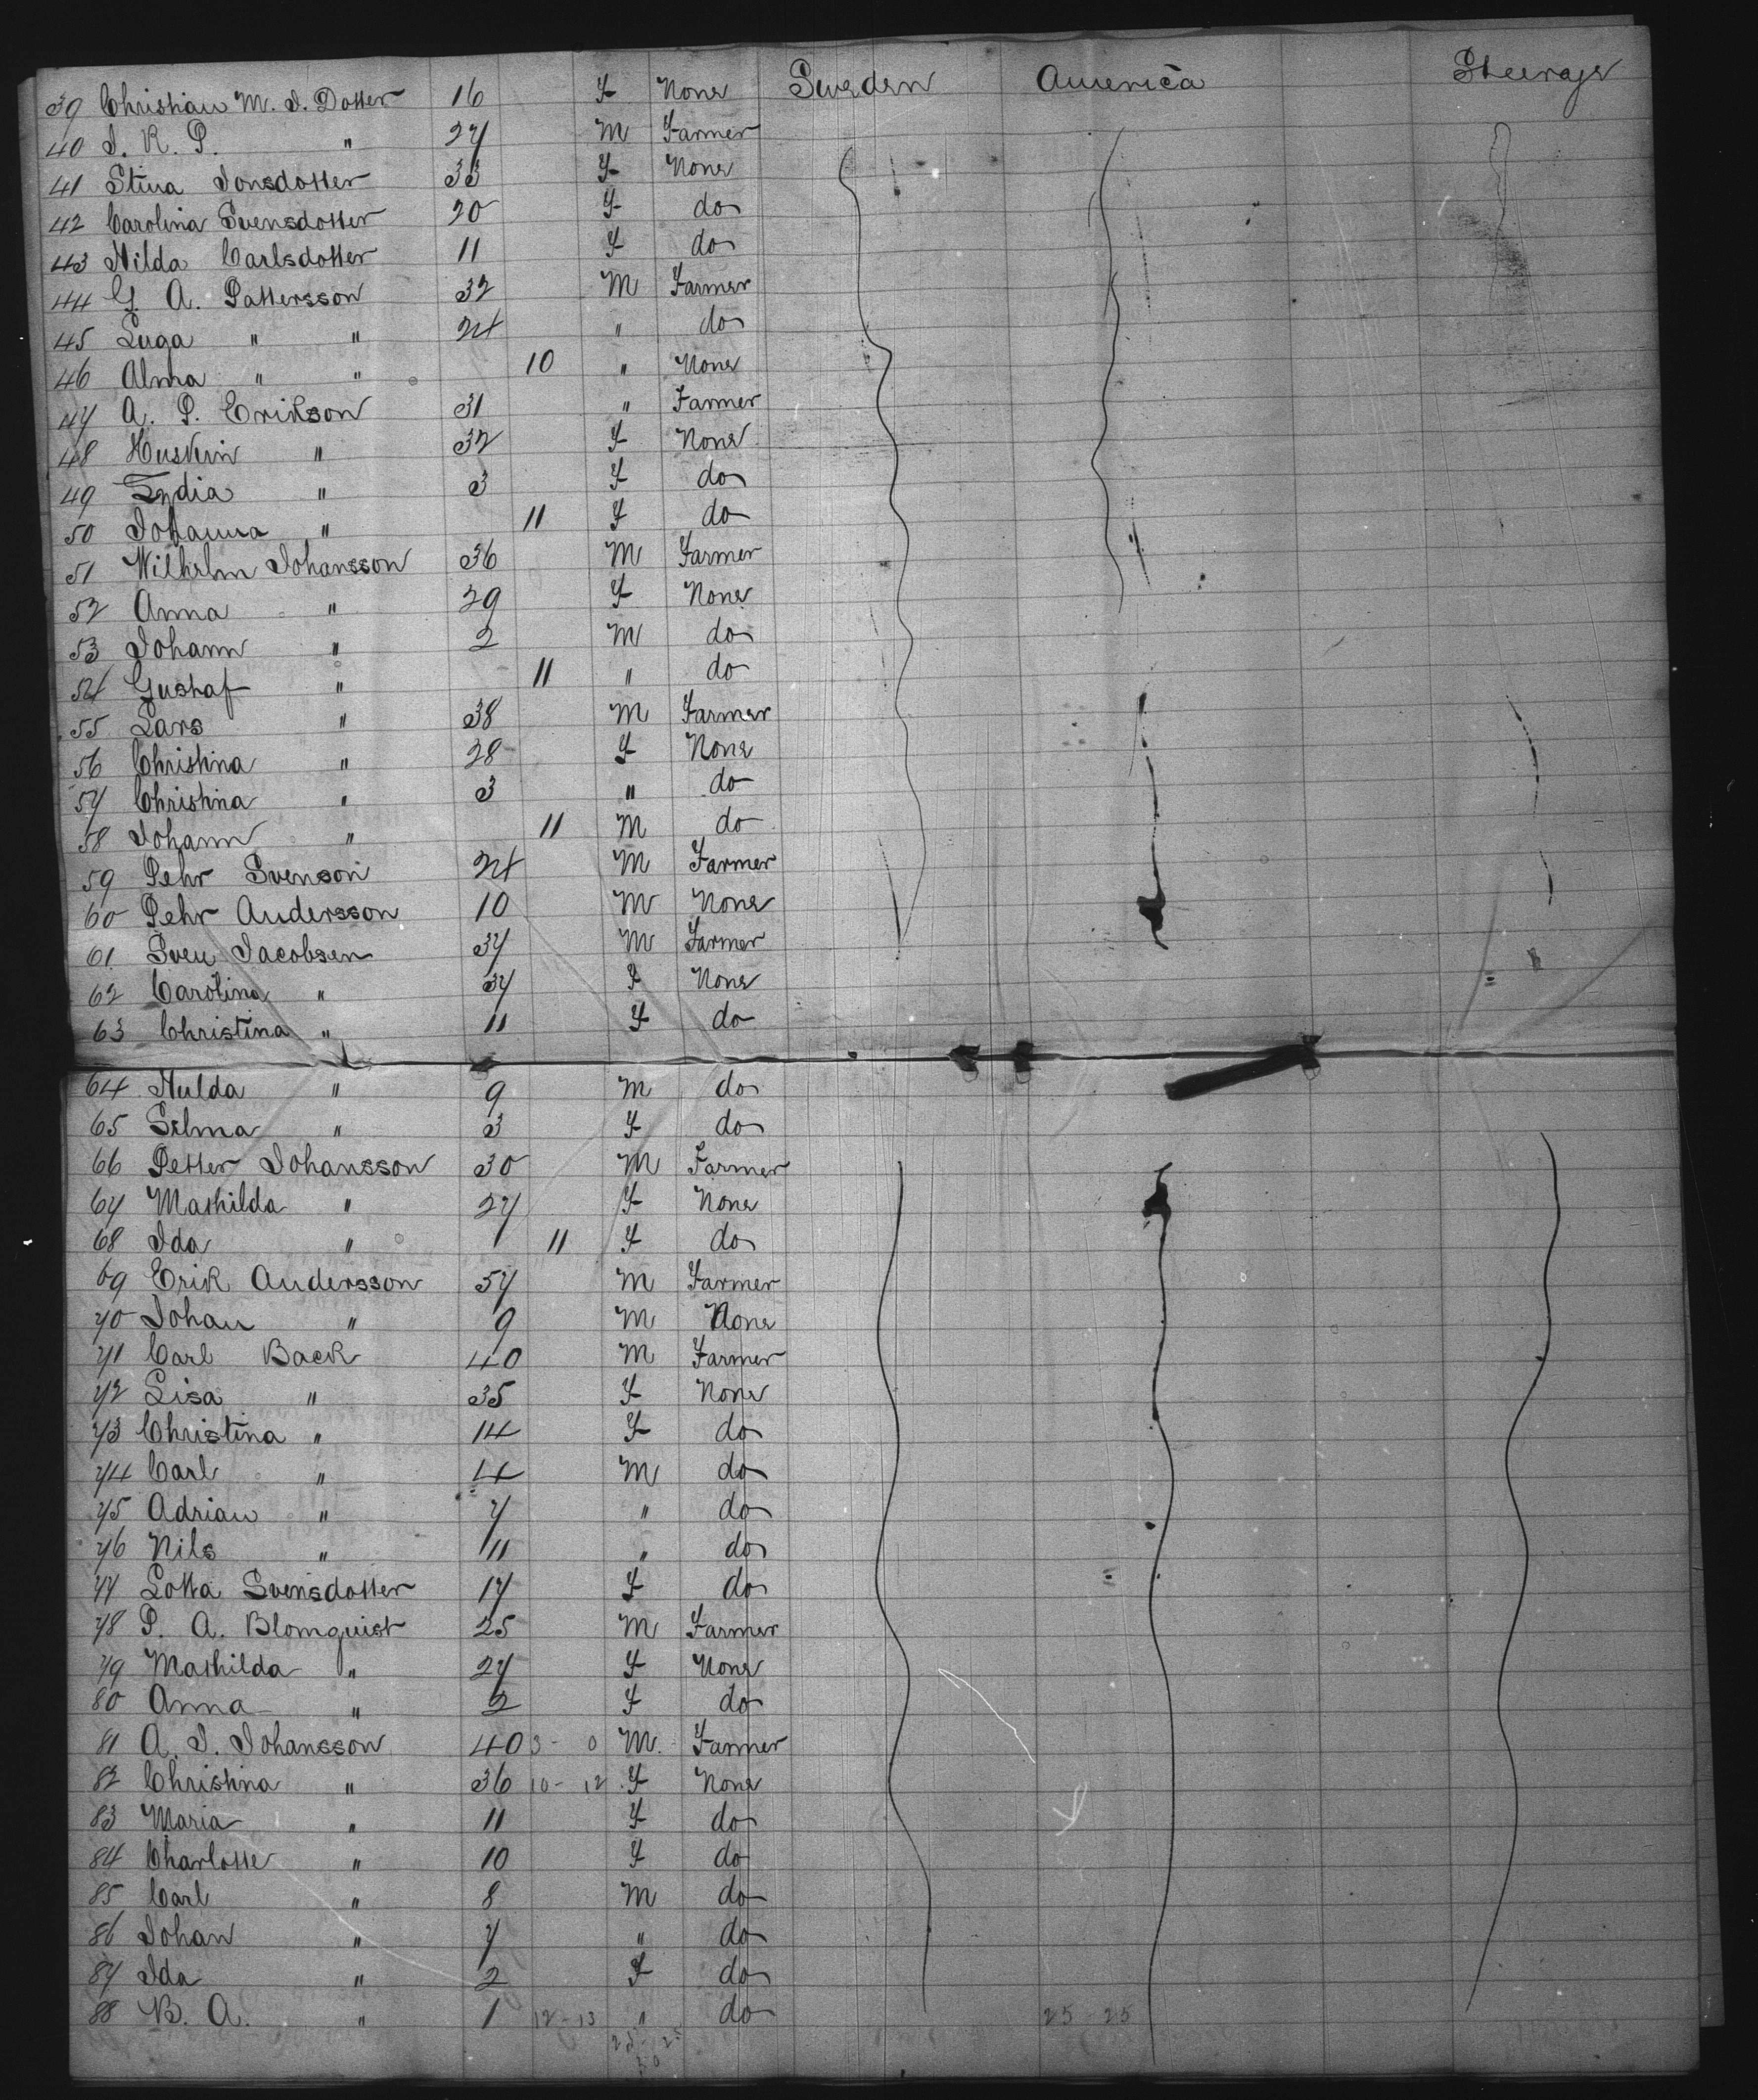 39 Christian M. J. Dotter 16 F None Sweden America Steerage
40 J. K. P. " 27 M Farmer
41 Stina Jonsdotter 33 F None
42 Carolina Svensdotter 20 F do
43 Hilda Carlsdotter 11 F do
44 G. A. Pattersson 32 M Farmer
45 Inga " " 24 " do
46 Alma " " 10 " None
47 A. P. Erikson 31 " Farmer
48 " 32 F None
49 Lydia " 3 F do
50 Johanna " 11 F do
51 Wilhelm Johansson 36 M Farmer
52 Anna " 29 F None
53 Johann " 2 M do
54 Gustaf " 11 " do
55 Lars " 38 M Farmer
56 Christina " 28 F None
57 Christina " 3 " do
58 Johann " 11 M do
59 Pehr Svenson 24 M Farmer
60 Pehr Andersson 10 M None
61 Sven Jacobsen 37 M Farmer
62 Carolina " 37 F None
63 Christina " 11 F do
64 Hulda " 9 M do
65 Selma " 3 F do
66 Petter Johansson 30 M Farmer
67 Mathilda " 27 F None
68 Ida " 11 F do
69 Erik Andersson 57 M Farmer
70 Johan " 9 M None
71 Carl Back 40 M Farmer
72 Lisa " 35 F None
73 Christina " 14 F do
74 Carl " 4 M do
75 Adrian " 7 " do
76 Nils " 11 " do
77 Lotta Svensdotter 17 F do
78 P. A. Blomquist 25 M Farmer
79 Mathilda " 27 F None
80 Anna " 2 F do
81 A. J. Johansson 40 3 - 0 M. Farmer
82 Christina " 36 10 - 12 F None
83 Maria " 11 F do
84 Charlotte " 10 F do
85 Carl " 8 M do
86 Johan " 7 " do
87 Ida " 2 F do
88 B. A. " 1 12 - 13 " do 25 - 25